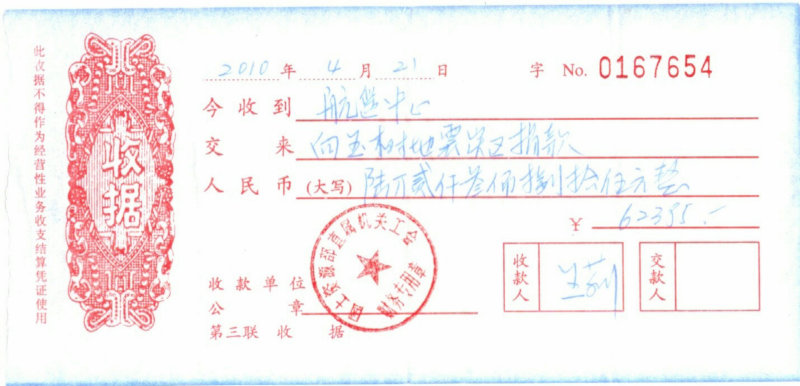 此收据不得作为经营性业务收支结算凭证使用
收据
2010 年 4 月 21 日 字 No. 0167654
今收到 航遥中心
交来 向玉树地震灾区捐款
人民币(大写) 陆万贰仟叁佰捌拾伍元整
¥ 62395.-
国土资源部直属机关工会
财务专用章
收款单位
公章
收款人 王莉
交款人
第三联 收据